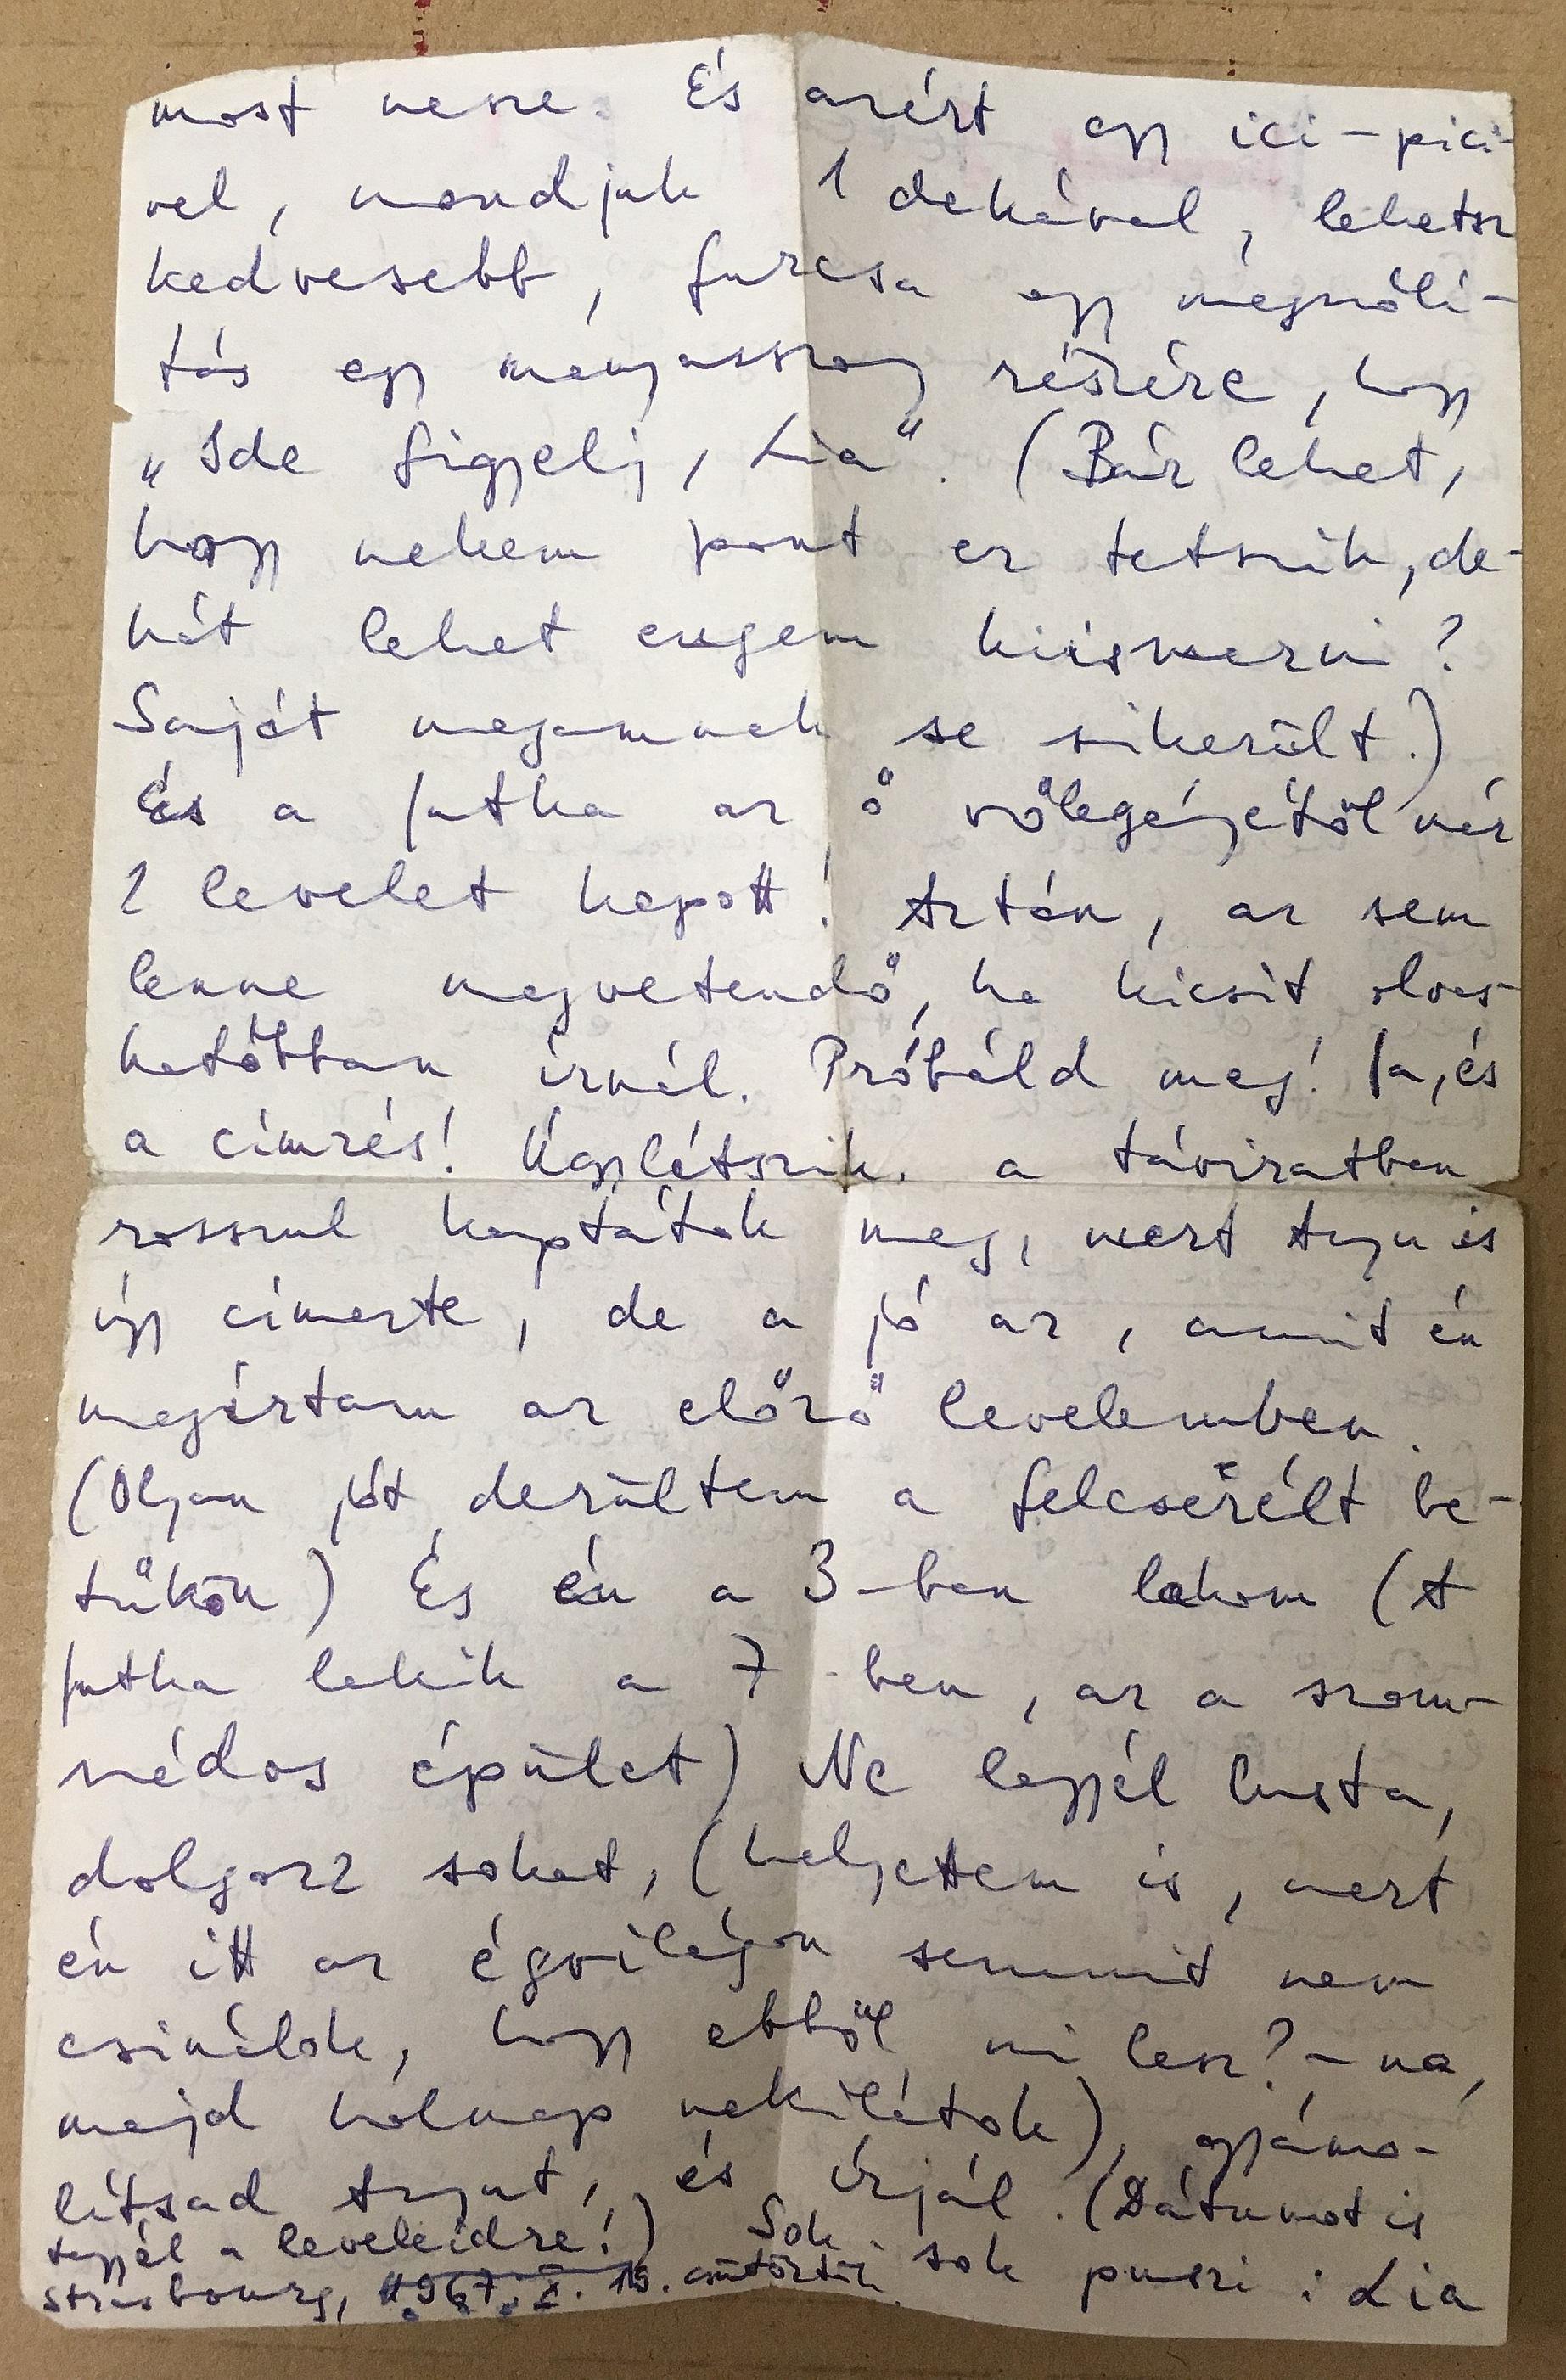 most messze. És azért egy ici-pici-
vel, mondjuk 1 dekával, lehetsz
kedvesebb, furcsa egy megszólí-
tás egy menyasszony részére, hogy
„Ide figyelj, Lia". (Bár lehet,
hogy nekem pont ez tetszik, de-
hát lehet engem kiismerni?
Saját magamnak se sikerült.)
És a Jutka az ő vőlegényétől már
2 levelet kapott! Aztán, az sem
lenne megvetendő, ha kicsit olvas-
hatóbban írnál. Próbáld meg! Ja, és
a címzés! Úgylátszik, a táviratban
rosszul kaptátok meg, mert Anyu is
így címezte, de a jó az, amit én
megírtam az előző levelemben.
(Olyan jót derültem a felcserélt be-
tűkön) És én a 3-ban lakom (A
Jutka lakik a 7-ben, az a szom-
szédos épület) Ne legyél lusta,
dolgozz sokat, (helyettem is, mert
én itt az égvilágon semmit nem
csinálok, hogy ebből mi lesz? - na,
majd holnap nekilátok), gyámo-
lítsad Anyut, és írjál. (Dátumot is
tegyél a leveleidre!) Sok
sok puszi: Lia
Strasbourg, 1967. X. csütörtök